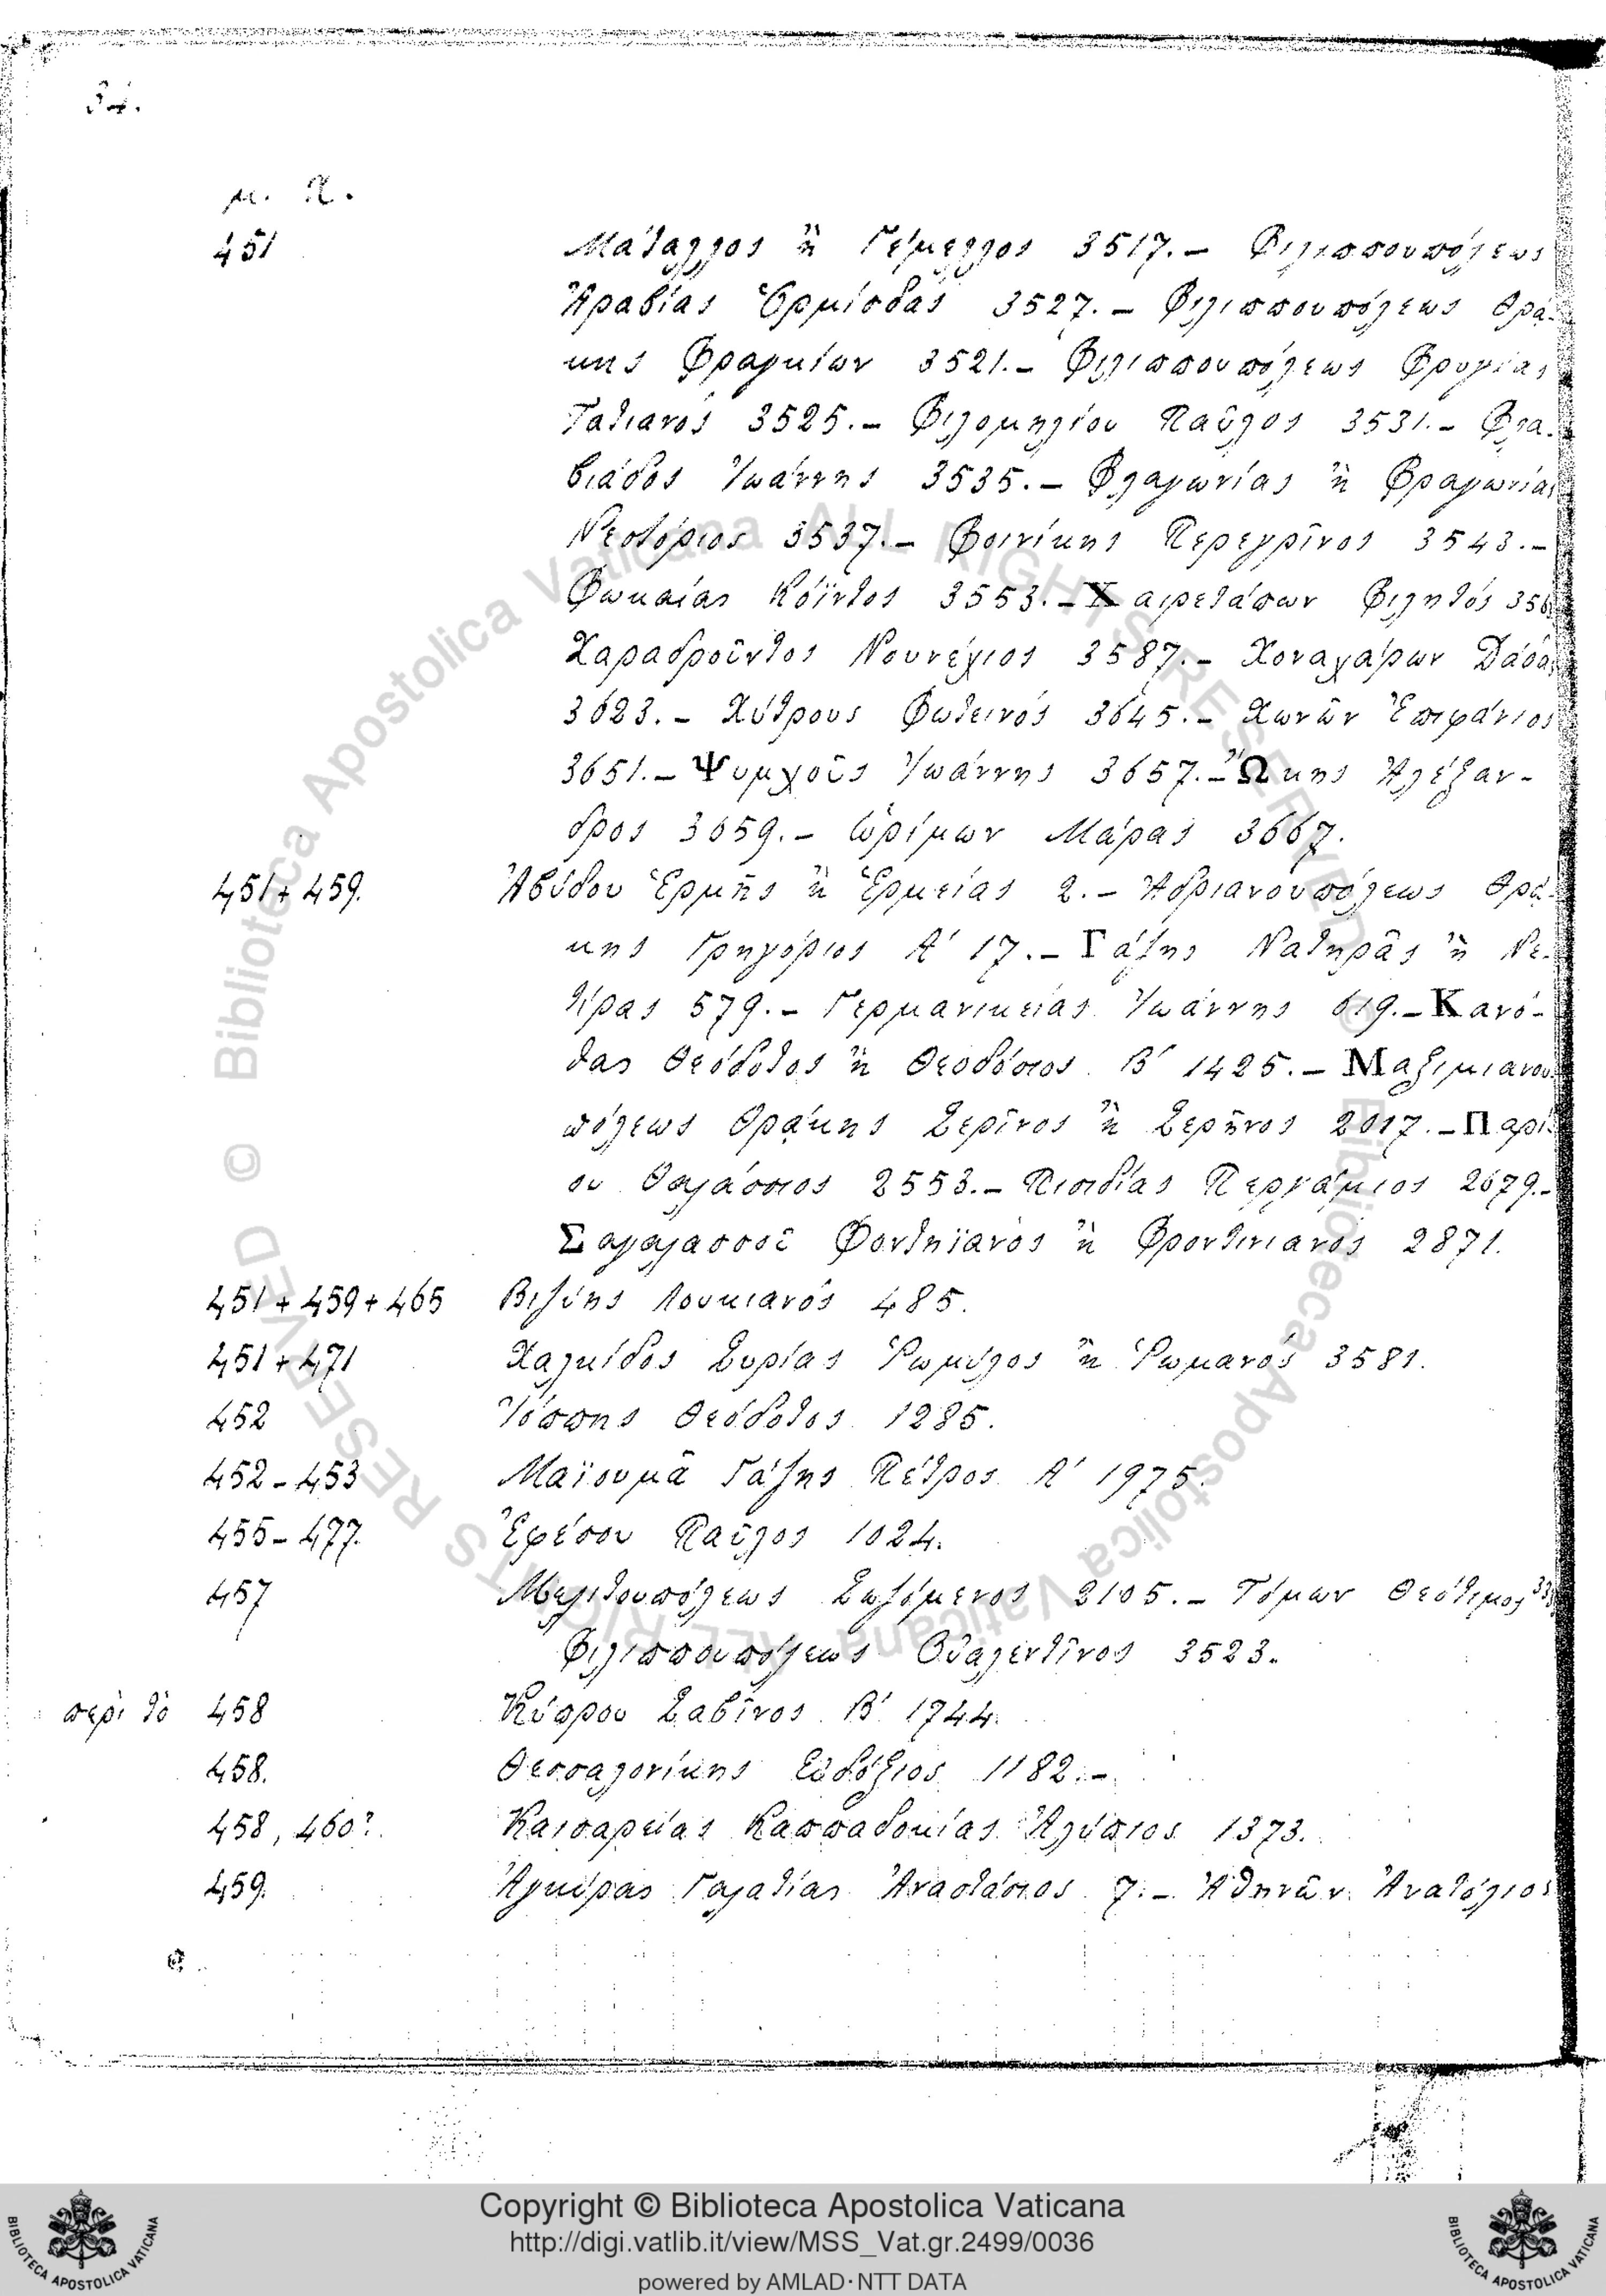 34.
μ. Χ.
451 Μάταλλος ἢ Γέμελλος 3517.– Φιλιππουπόλεως
Ἀραβίας Ὁρμίσδας 3527.– Φιλιππουπόλεως Θρᾴ-
κης Φραγκίων 3521.– Φιλιππουπόλεως Φρυγίας
Τατιανός 3525.– Φιλομηλίου Παῦλος 3531.– Φλα-
βιάδος Ἰωάννης 3535.– Φλαγωνίας ἢ Φραγωνίας
Νεστόριος 3537.– Φοινίκης Περεγρῖνος 3543.–
Φωκαίας Κόϊντος 3553.– Χαιρετάπων Φιλητός 356
Χαραδροῦντος Νουνέχιος 3587.– Χοναχάρων Δάδας
3623.– Χύτρους Φωτεινός 3645.– Χωνῶν Ἐπιφάνιος
3651.– Ψυμχοῦς Ἰωάννης 3657.– Ὤκης Ἀλέξαν-
δρος 3659.– Ὡρίμων Μάρας 3667.
451+459. Ἀβύδου Ἑρμῆς ἢ Ἑρμείας 2.– Ἀδριανουπόλεως Θρᾴ-
κης Γρηγόριος Α΄ 17.– Γάζης Νατηρᾶς ἢ Νε-
τήρας 579.– Γερμανικείας Ἰωάννης 619.– Κανό-
θας Θεόδοτος ἢ Θεοδόσιος Β΄ 1425.– Μαξιμιανου-
πόλεως Θρᾴκης Σερῖνος ἢ Σερῆνος 2017.– Παρί-
ου Θαλάσσιος 2553.– Πισιδίας Περγάμιος 2679.–
Σαγαλασσοῦ Φοντηϊανός ἢ Φροντινιανός 2871.
451+459+465 Βιζύης Λουκιανός 485.
451+471 Χαλκίδος Συρίας Ῥωμύλος ἢ Ῥωμανός 3581.
452 Ἰόππης Θεόδοτος 1285.
452–453 Μαϊουμᾶ Γάζης Πέτρος Α΄ 1975.
455–477. Ἐφέσου Παῦλος 1024.
457 Μελιτουπόλεως Σωζόμενος 2105.– Τόμων Θεότιμος
Φιλιππουπόλεως Οὐαλεντῖνος 3523.
περὶ τὸ 458 Κύπρου Σαβῖνος Β΄ 1744.
458. Θεσσαλονίκης Εὐδόξιος 1182.–
458, 460? Καισαρείας Καππαδοκίας Ἀλύπιος 1373.
459. Ἀγκύρας Γαλατίας Ἀναστάσιος 7.– Ἀθηνῶν Ἀνατόλιος
© Biblioteca Apostolica Vaticana ALL RIGHTS RESERVED
© Biblioteca Apostolica Vaticana ALL RIGHTS RESERVED
Copyright © Biblioteca Apostolica Vaticana
http://digi.vatlib.it/view/MSS_Vat.gr.2499/0036
powered by AMLAD·NTT DATA
BIBLIOTECA APOSTOLICA VATICANA
BIBLIOTECA APOSTOLICA VATICANA